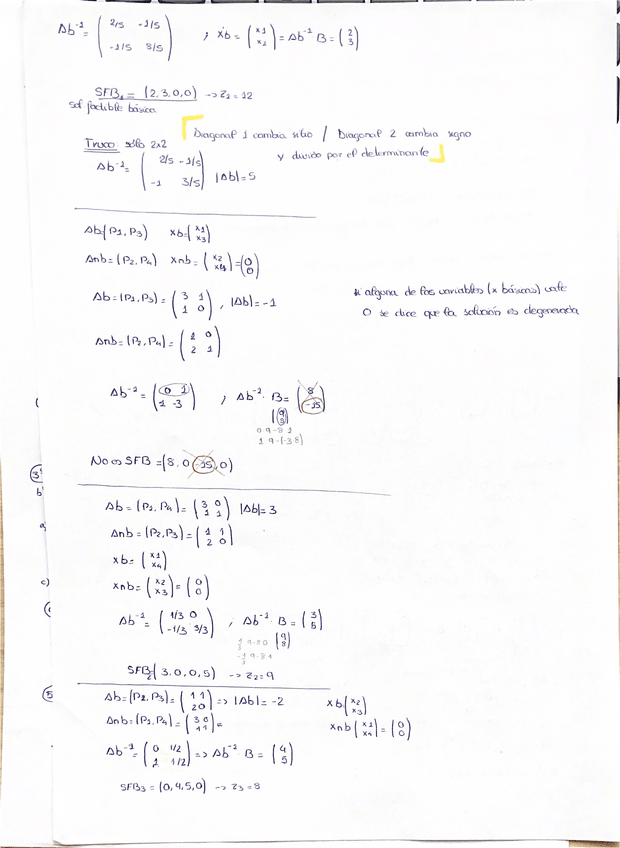 Ab⁻¹ = ( 2/5 -1/5 / -1/5 3/5 ) ; xb = ( x1 / x2 ) = Ab⁻¹ B = ( 2 / 3 )
SFB1 = (2, 3, 0, 0) → Z1 = 12
Sol factible básica
Truco sólo 2x2 Diagonal 1 cambia sitio / Diagonal 2 cambia signo
y divido por el determinante
Ab⁻¹ = ( 2/5 -1/5 / -1 3/5 ) |Ab| = 5
Ab(P1, P3) xb = ( x1 / x3 )
Anb = (P2, P4) xnb = ( x2 / x4 ) = ( 0 / 0 )
Si alguna de las variables (x básicas) vale
0 se dice que la solución es degenerada
Ab = (P1, P3) = ( 3 1 / 1 0 ), |Ab| = -1
Anb = (P2, P4) = ( 1 0 / 2 1 )
Ab⁻¹ = ( 0 1 / 1 -3 ) ; Ab⁻¹ · B = ( 8 / -15 )
( 9 / 8 )
0 9 - 8 1
1 9 - (-3 8)
No es SFB = (8, 0, -15, 0)
3
b
a
c)
Ab = (P1, P4) = ( 3 0 / 1 1 ) |Ab| = 3
Anb = (P2, P3) = ( 1 1 / 2 0 )
xb = ( x1 / x4 )
xnb = ( x2 / x3 ) = ( 0 / 0 )
Ab⁻¹ = ( 1/3 0 / -1/3 3/3 ), Ab⁻¹ · B = ( 3 / 5 )
( 9 / 8 )
1/3 9 - 8 0
-1/3 9 - 8 1
SFB2 ( 3, 0, 0, 5) → Z2 = 9
5
Ab = (P2, P3) = ( 1 1 / 2 0 ) => |Ab| = -2 xb ( x2 / x3 )
Anb = (P1, P4) = ( 3 0 / 1 1 ) = xnb ( x1 / x4 ) = ( 0 / 0 )
Ab⁻¹ = ( 0 1/2 / 1 1/2 ) => Ab⁻¹ B = ( 4 / 5 )
SFB3 = (0, 4, 5, 0) → Z3 = 8